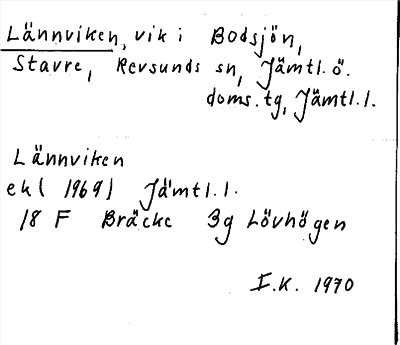 Lännviken, vik i Bodsjön,
Stavre, Revsunds sn, Jämtl. ö.
doms. tg, Jämtl. l.
Lännviken
ek (1969) Jämtl. l.
18 F Bräcke 3g Lövhögen
I.K. 1970